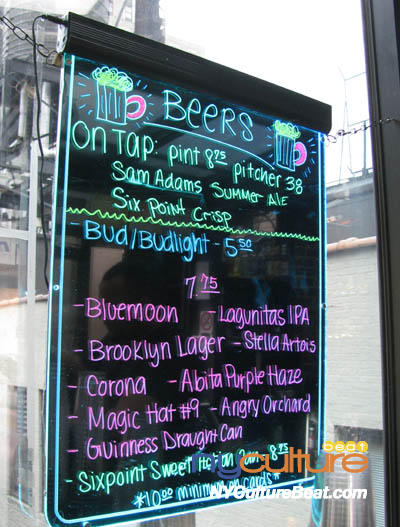 BEERS
ON TAP: pint 8 75 pitcher 38
Sam Adams Summer Ale
Six Point Crisp
- Bud/Budlight - 5 50
7 75
- Bluemoon - Lagunitas IPA
- Brooklyn Lager - Stella Artois
- Corona - Abita Purple Haze
- Magic Hat #9 - Angry Orchard
- Guinness Draught Can
- Sixpoint Sweet Action 8 75
*10.00 minimum on cards*
nyculture beat
NYCultureBeat.com